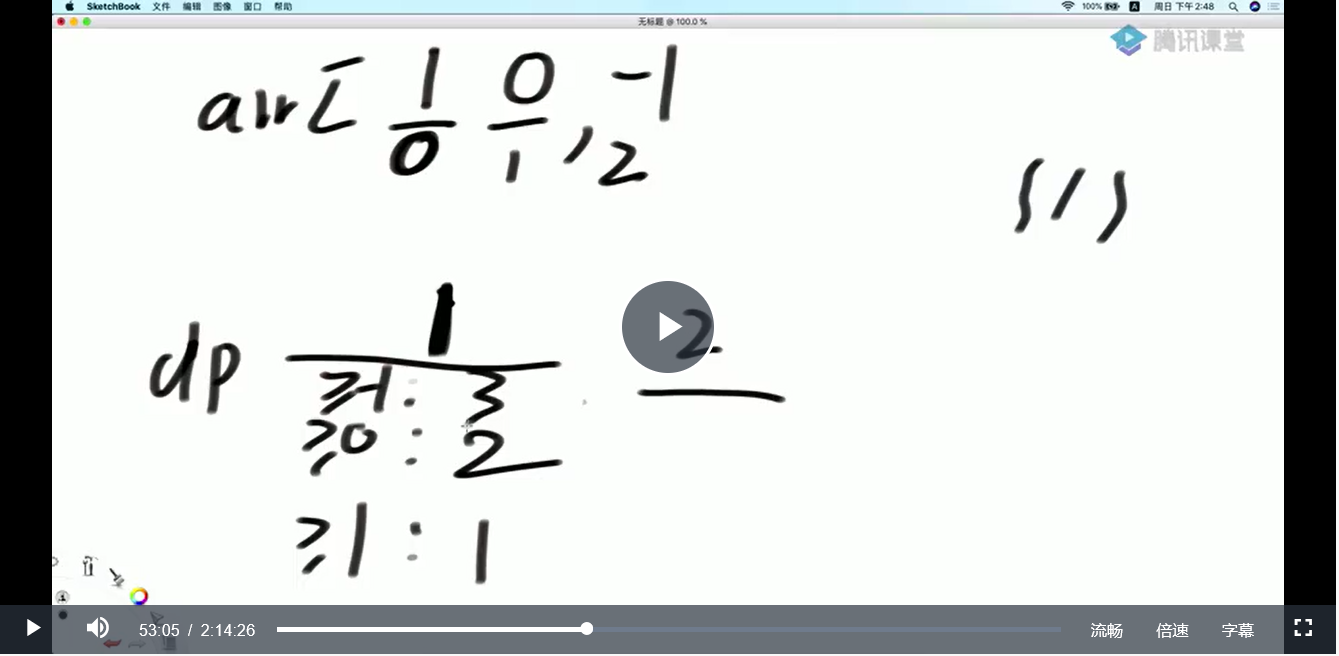 SketchBook 文件 编辑 图像 窗口 帮助 100% A 周日 下午2:48
无标题 @ 100.0 %
腾讯课堂
arr[ 1 0 -1
0 1 , 2
{1}
dp 1 2
≥-1: 3
≥0: 2
≥1: 1
53:05 / 2:14:26 流畅 倍速 字幕